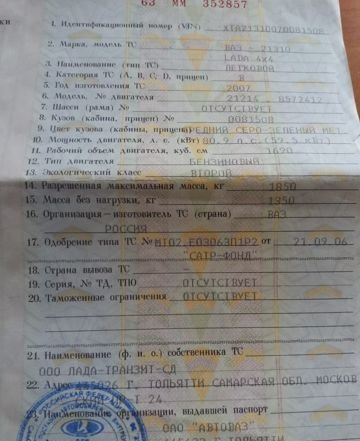 63 ММ 352857
1. Идентификационный номер (VIN) ХТА21310070081508
2. Марка, модель ТС ВАЗ - 21310
LADA 4x4
3. Наименование (тип ТС) ЛЕГКОВОЙ
4. Категория ТС (А, В, С, D, прицеп) В
5. Год изготовления ТС 2007
6. Модель, № двигателя 21214 8572412
7. Шасси (рама) № ОТСУТСТВУЕТ
8. Кузов (кабина, прицеп) № 0081508
9. Цвет кузова (кабины, прицепа) СРЕДНИЙ СЕРО-ЗЕЛЕНЫЙ МЕТ.
10. Мощность двигателя, л. с. (кВт) 80.9 л.с.(59.5 кВт)
11. Рабочий объем двигателя, куб. см 1690
12. Тип двигателя БЕНЗИНОВЫЙ
13. Экологический класс ВТОРОЙ
14. Разрешенная максимальная масса, кг 1850
15. Масса без нагрузки, кг 1350
16. Организация – изготовитель ТС (страна) ВАЗ
РОССИЯ
17. Одобрение типа ТС № от 21.09.06
"САТР-ФОНД"
18. Страна вывоза ТС
19. Серия, № ТД, ТПО ОТСУТСТВУЕТ
20. Таможенные ограничения ОТСУТСТВУЕТ
21. Наименование (ф. и. о.) собственника ТС
ООО ЛАДА-ТРАНЗИТ-СД
22. Адрес 445026 Г. ТОЛЬЯТТИ САМАРСКАЯ ОБЛ. МОСКОВ
24
23. Наименование организации, выдавшей паспорт
ОАО "АВТОВАЗ"